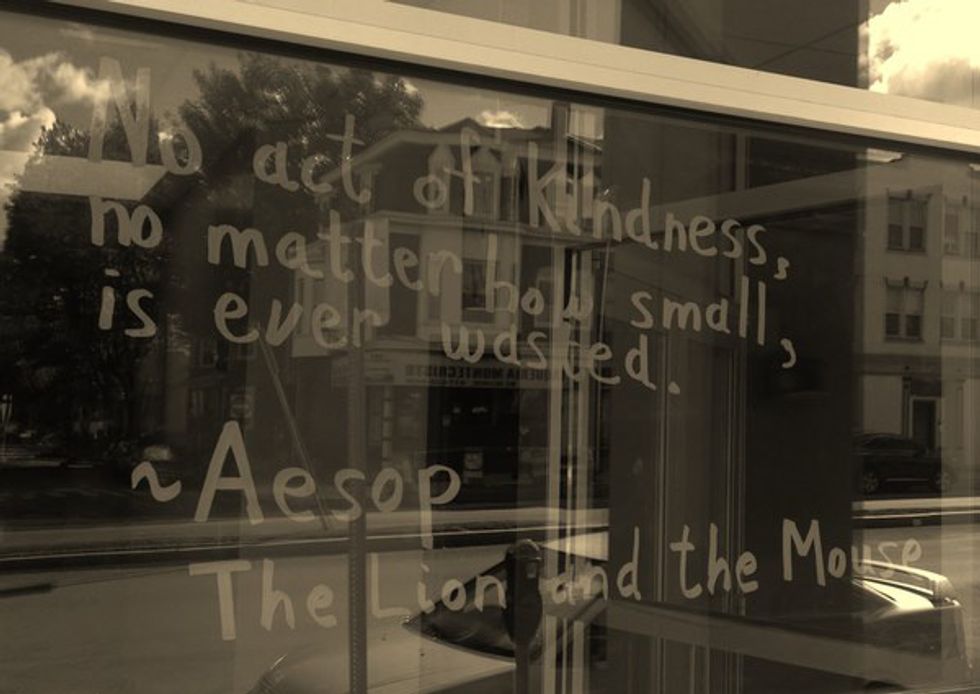 No act of Kindness,
no matter how small,
is ever wasted.
~Aesop
The Lion and the Mouse